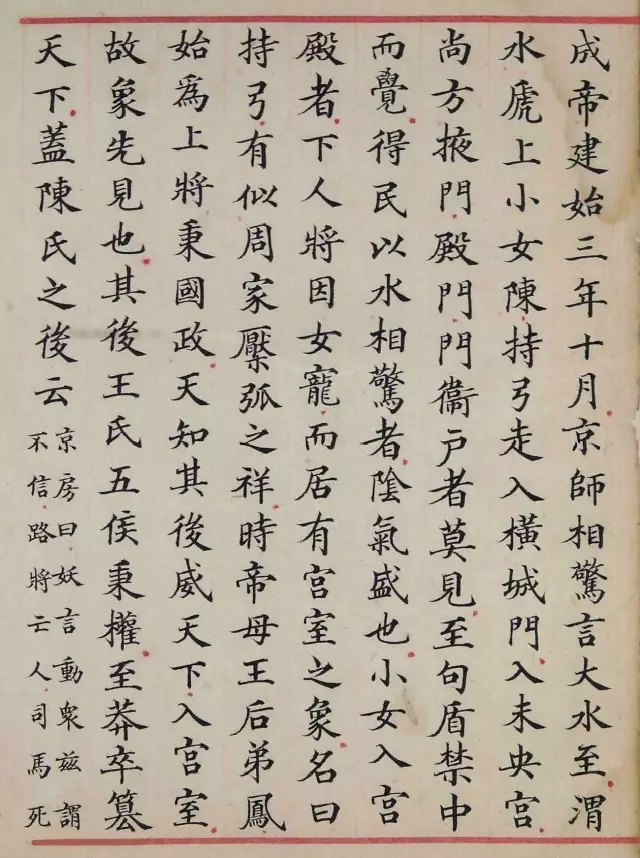 成帝建始三年十月京師相驚言大水至渭
水虒上小女陳持弓走入橫城門入未央宮
尚方掖門殿門門衞戶者莫見至句盾禁中
而覺得民以水相驚者陰氣盛也小女入宮
殿者下人將因女寵而居有宮室之象名曰
持弓有似周家檿弧之祥時帝母王后弟鳳
始爲上將秉國政天知其後威天下入宮室
故象先見也其後王氏五侯秉權至莽卒篡
天下蓋陳氏之後云
京房曰妖言動衆兹謂
不信路將亡人司馬死